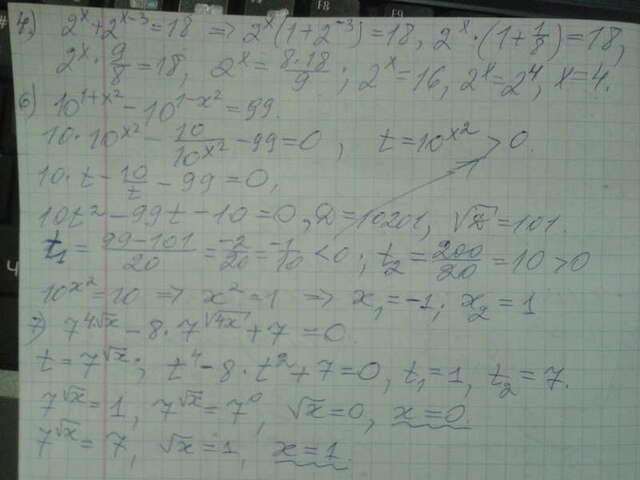 4) 2^x + 2^{x-3} = 18 => 2^x(1+2^{-3}) = 18, 2^x · (1+1/8) = 18,
2^x · 9/8 = 18, 2^x = 8·18/9; 2^x = 16, 2^x = 2^4, x = 4.
6) 10^{1+x^2} - 10^{1-x^2} = 99.
10 · 10^{x^2} - 10/10^{x^2} - 99 = 0, t = 10^{x^2} > 0.
10 · t - 10/t - 99 = 0,
10t^2 - 99t - 10 = 0, D = 10201, √D = 101.
t_1 = (99-101)/20 = -2/20 = -1/10 < 0; t_2 = 200/20 = 10 > 0
10^{x^2} = 10 => x^2 = 1 => x_1 = -1; x_2 = 1
7) 7^{4√x} - 8 · 7^{√4x} + 7 = 0.
t = 7^{√x}; t^4 - 8 · t^2 + 7 = 0, t_1 = 1, t_2 = 7.
7^{√x} = 1, 7^{√x} = 7^0, √x = 0, x = 0.
7^{√x} = 7, √x = 1, x = 1.